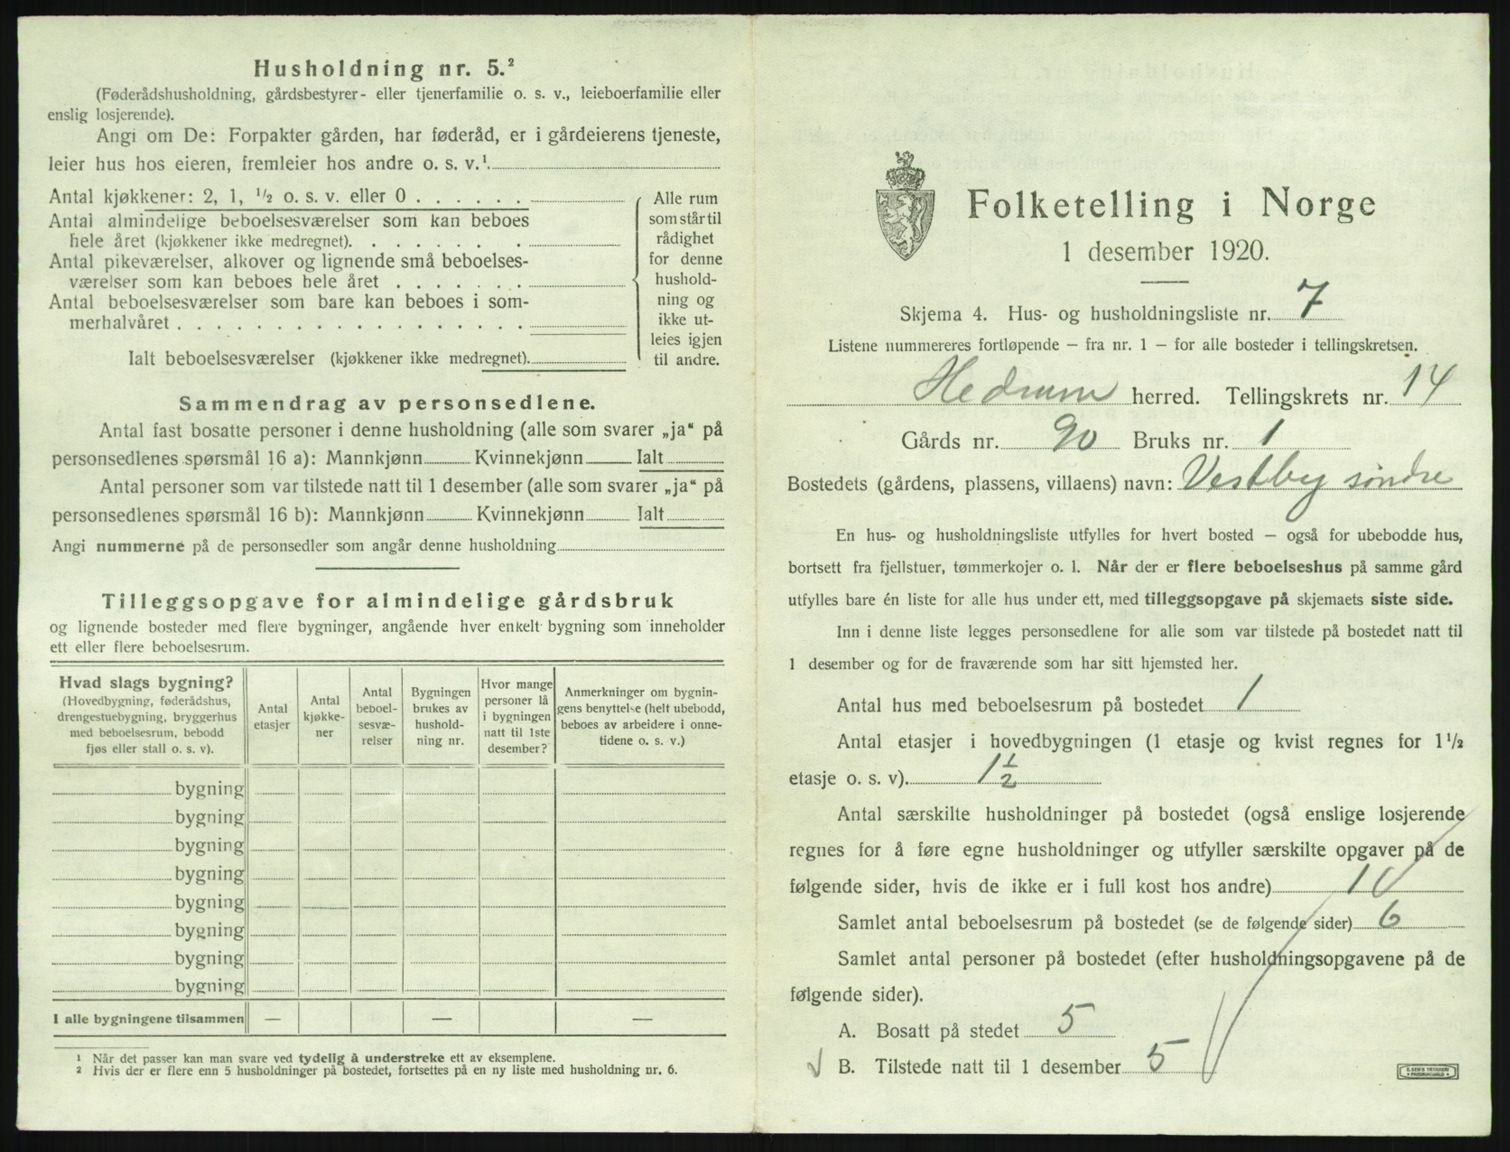 Husholdning nr. 5.²
(Føderådshusholdning, gårdsbestyrer- eller tjenerfamilie o. s. v., leieboerfamilie eller
enslig losjerende).
Angi om De: Forpakter gården, har føderåd, er i gårdeierens tjeneste,
leier hus hos eieren, fremleier hos andre o. s. v.¹
Antal kjøkkener: 2, 1, ½ o. s. v. eller 0
Antal almindelige beboelsesværelser som kan beboes
hele året (kjøkkener ikke medregnet).
Antal pikeværelser, alkover og lignende små beboelses-
værelser som kan beboes hele året
Antal beboelsesværelser som bare kan beboes i som-
merhalvåret
Ialt beboelsesværelser (kjøkkener ikke medregnet).
Alle rum
som står til
rådighet
for denne
hushold-
ning og
ikke ut-
leies igjen
til andre.
Sammendrag av personsedlene.
Antal fast bosatte personer i denne husholdning (alle som svarer „ja“ på
personsedlenes spørsmål 16 a): Mannkjønn Kvinnekjønn Ialt
Antal personer som var tilstede natt til 1 desember (alle som svarer „ja“ på
personsedlenes spørsmål 16 b): Mannkjønn Kvinnekjønn Ialt
Angi nummerne på de personsedler som angår denne husholdning
Tilleggsopgave for almindelige gårdsbruk
og lignende bosteder med flere bygninger, angående hver enkelt bygning som inneholder
ett eller flere beboelsesrum.
Hvad slags bygning?
(Hovedbygning, føderådshus,
drengestuebygning, bryggerhus
med beboelsesrum, bebodd
fjøs eller stall o. s. v).
Antal
etasjer
Antal
kjøkke-
ner
Antal
beboel-
sesvæ-
relser
Bygningen
brukes av
hushold-
ning nr.
Hvor mange
personer lå
i bygningen
natt til 1ste
desember?
Anmerkninger om bygnin-
gens benyttelse (helt ubebodd,
beboes av arbeidere i onne-
tidene o. s. v.)
bygning
bygning
bygning
bygning
bygning
bygning
bygning
bygning
I alle bygningene tilsammen — — —
¹ Når det passer kan man svare ved tydelig å understreke ett av eksemplene.
² Hvis der er flere enn 5 husholdninger på bostedet, fortsettes på en ny liste med husholdning nr. 6.
Folketelling i Norge
1 desember 1920.
Skjema 4. Hus- og husholdningsliste nr. 7
Listene nummereres fortløpende — fra nr. 1 — for alle bosteder i tellingskretsen.
Hedrum herred. Tellingskrets nr. 14
Gårds nr. 90 Bruks nr. 1
Bostedets (gårdens, plassens, villaens) navn: Vestby søndre
En hus- og husholdningsliste utfylles for hvert bosted — også for ubebodde hus,
bortsett fra fjellstuer, tømmerkojer o. l. Når der er flere beboelseshus på samme gård
utfylles bare én liste for alle hus under ett, med tilleggsopgave på skjemaets siste side.
Inn i denne liste legges personsedlene for alle som var tilstede på bostedet natt til
1 desember og for de fraværende som har sitt hjemsted her.
Antal hus med beboelsesrum på bostedet 1
Antal etasjer i hovedbygningen (1 etasje og kvist regnes for 1½
etasje o. s. v). 1½
Antal særskilte husholdninger på bostedet (også enslige losjerende
regnes for å føre egne husholdninger og utfyller særskilte opgaver på de
følgende sider, hvis de ikke er i full kost hos andre) 1
Samlet antal beboelsesrum på bostedet (se de følgende sider) 6
Samlet antal personer på bostedet (efter husholdningsopgavene på de
følgende sider).
A. Bosatt på stedet 5
B. Tilstede natt til 1 desember 5